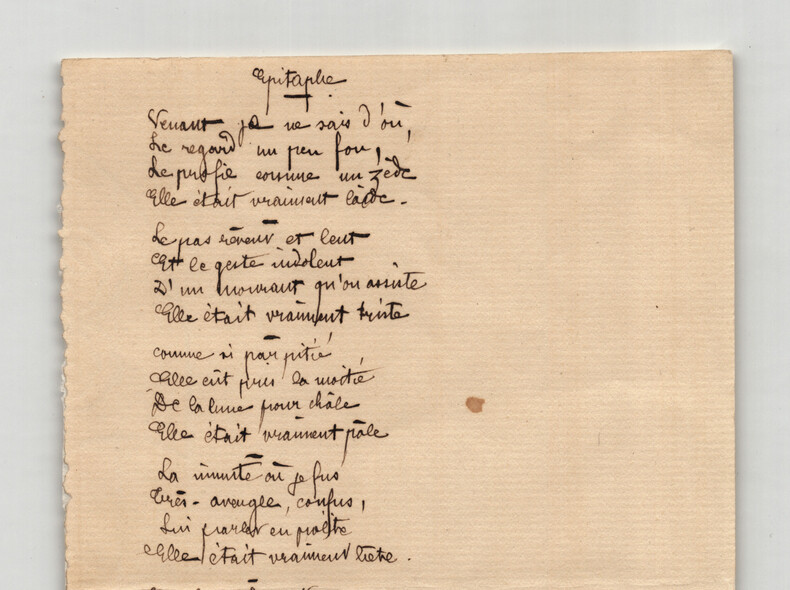 Epitaphe
Venant je ne sais d'où,
Le regard un peu fou,
Le profil comme un zède
Elle était vraiment laide.
Le pas rêveur et lent
Et le geste indolent
D'un mourant qu'on assiste
Elle était vraiment triste
comme si par pitié
Elle eût pris la moitié
De la lune pour châle
Elle était vraiment pâle
La minute où je fus
Très-aveugle, confus,
Lui parler en poète
Elle était vraiment bête.